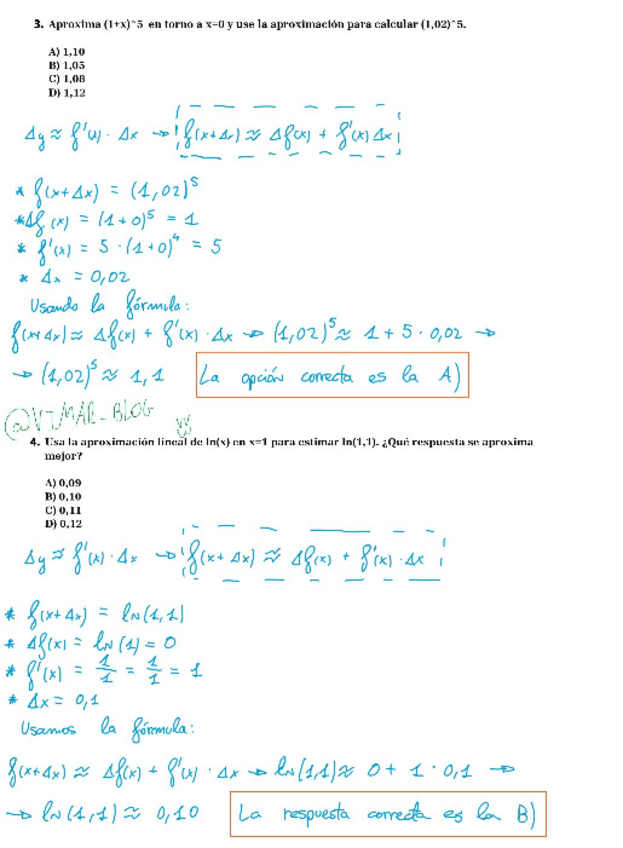 3. Aproxima (1+x)^5 en torno a x=0 y use la aproximación para calcular (1,02)^5.
A) 1,10
B) 1,05
C) 1,08
D) 1,12
Δy ≈ f'(x) · Δx → f(x+Δx) ≈ Δf(x) + f'(x) Δx
* f(x+Δx) = (1,02)^5
* Δf(x) = (1+0)^5 = 1
* f'(x) = 5 · (1+0)^4 = 5
* Δx = 0,02
Usando la fórmula:
f(x+Δx) ≈ Δf(x) + f'(x) · Δx → (1,02)^5 ≈ 1 + 5 · 0,02 →
→ (1,02)^5 ≈ 1,1 La opción correcta es la A)
@VIMAR_BLOG
4. Usa la aproximación lineal de ln(x) en x=1 para estimar ln(1,1). ¿Qué respuesta se aproxima
mejor?
A) 0,09
B) 0,10
C) 0,11
D) 0,12
Δy ≈ f'(x) · Δx → f(x+Δx) ≈ Δf(x) + f'(x) · Δx
* f(x+Δx) = ln(1,1)
* Δf(x) = ln(1) = 0
* f'(x) = 1/1 = 1/1 = 1
* Δx = 0,1
Usamos la fórmula:
f(x+Δx) ≈ Δf(x) + f'(x) · Δx → ln(1,1) ≈ 0 + 1 · 0,1 →
→ ln(1,1) ≈ 0,10 La respuesta correcta es la B)